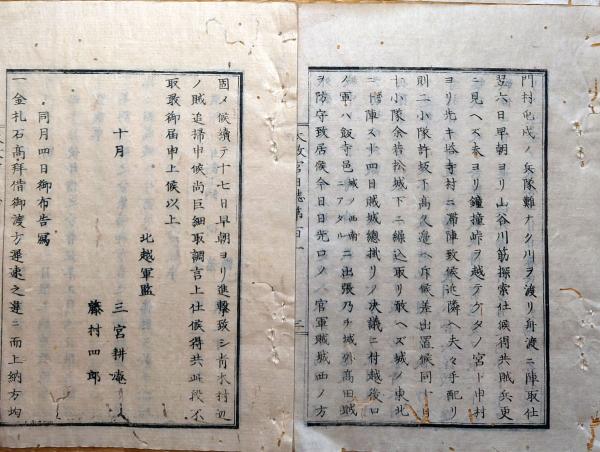 門村屯戍ノ兵隊難ナク川ヲ渡リ舟渡ニ陣取仕
翌六日早朝ヨリ山谷川筋探索仕候得共賊兵更
ニ見ヘズ夫ヨリ鐘撞峠ヲ越テケタノ宮ト申村
ヨリ先キ塔寺村ニ滞陣致候近隣ヘ夫々手配リ
則二小隊許坂下高久邉ヘ斥候差出置候同十日
七小隊余若松城下ニ繰込取リ敢ヘズ城ノ東北
ニ陣ス十四日賊城總攻リノ決議ニ村越後口
ノ軍ハ飯寺邑城ノ西南ニアタルニ出張乃チ城外高田
ヲ防守致居候今日日光口ノ官軍賊城西ノ方
太政官日誌第百一
三
固メ候續テ十七日早朝ヨリ進撃致シ青木村辺
ノ賊追掃申候尚巨細取調言上仕候得共此段不
取敢御届申上候以上
十月
北越軍監
三宮耕庵
藤村四郎
同月四日御布告寫
一金札石高拜借御渡方遲速之違ニ而上納方均